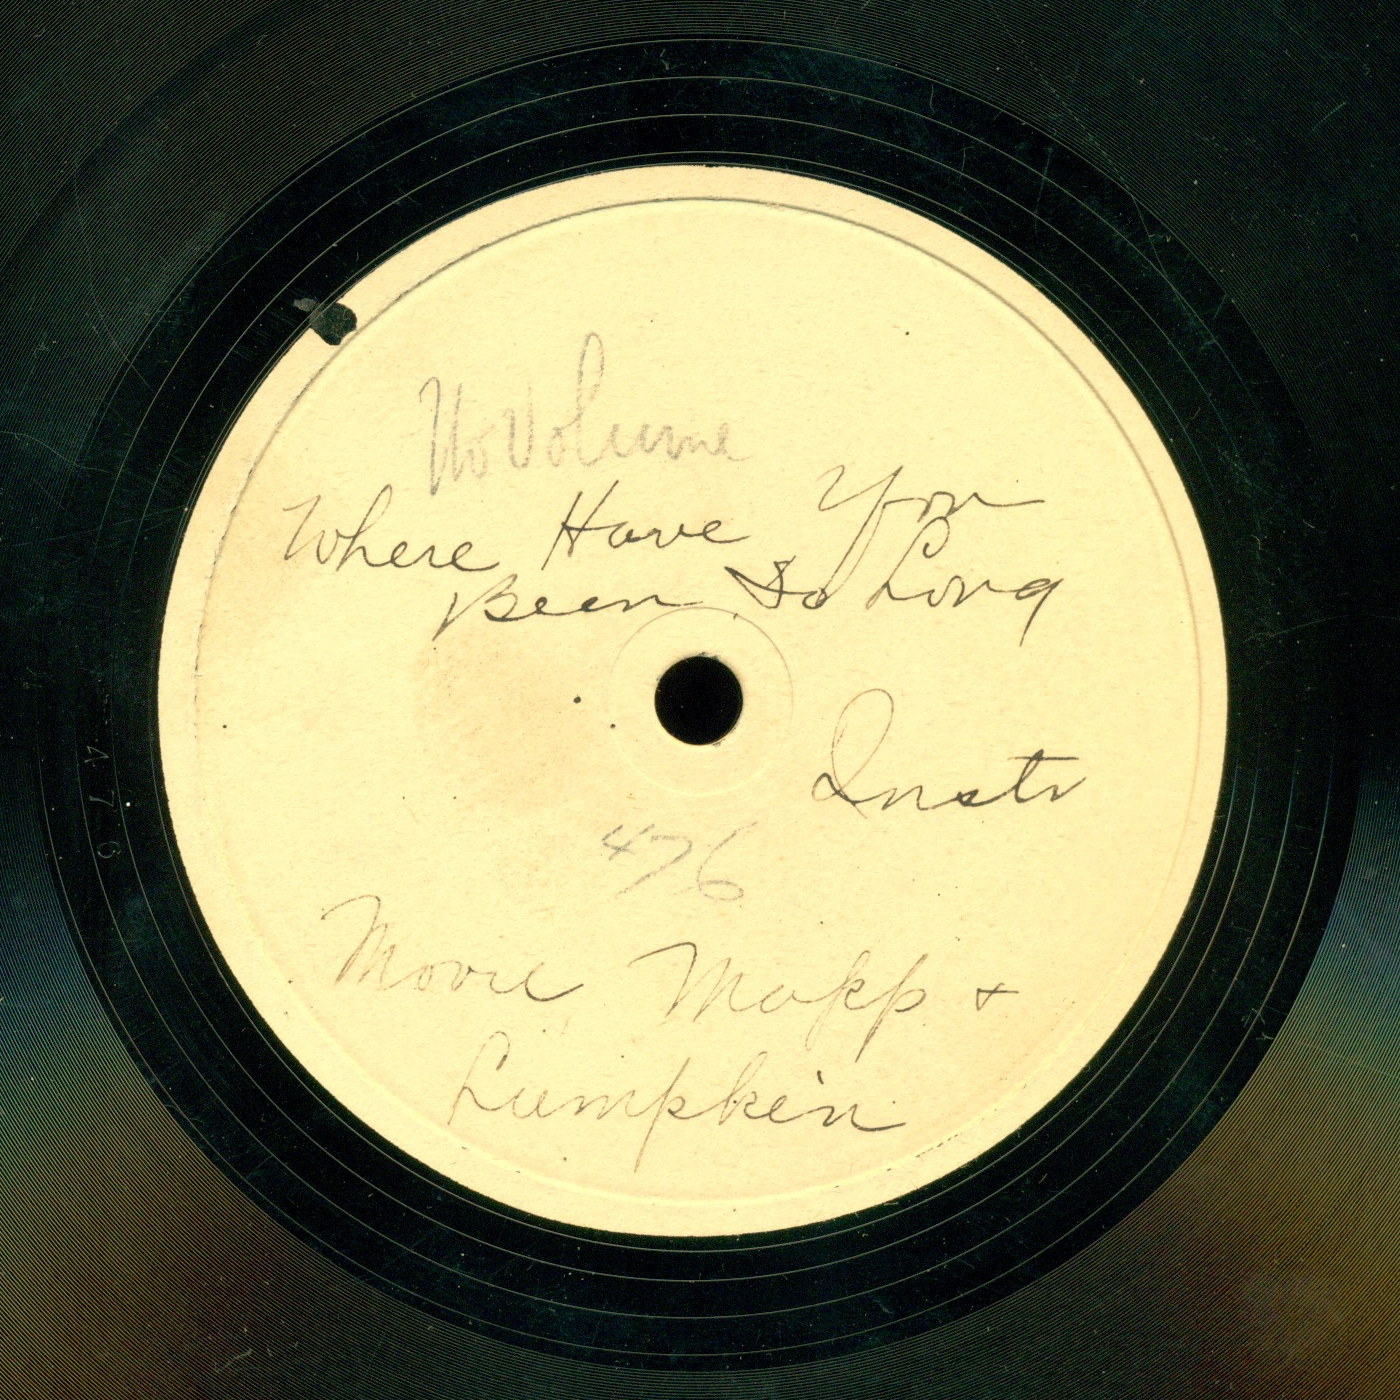 No Volume
Where Have You
Been So Long
Instr
476
Moore Mapp +
Lumpkin
476